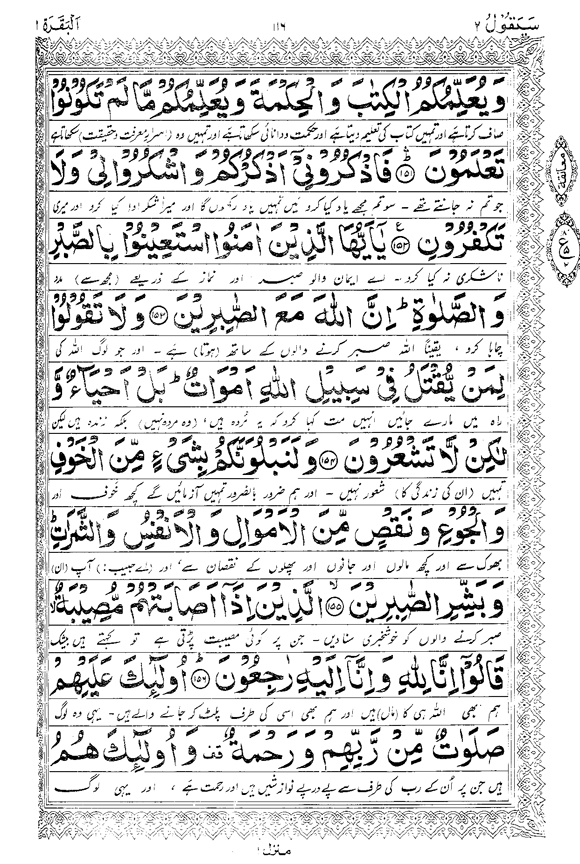 سَيَقُوْلُ ٢
١١٦
اَلْبَقَرَة ١
وَيُعَلِّمُكُمُ الْكِتٰبَ وَالْحِكْمَةَ وَيُعَلِّمُكُمْ مَّا لَمْ تَكُوْنُوْا
صاف کرتا ہے اور تمہیں کتاب کی تعلیم دیتا ہے اور حکمت و دانائی سکھاتا ہے اور تمہیں وہ (اسرارِ معرفت و حقیقت) سکھاتا ہے
تَعْلَمُوْنَ ﴿١٥١﴾ فَاذْكُرُوْنِيْٓ اَذْكُرْكُمْ وَاشْكُرُوْا لِيْ وَلَا
جو تم نہ جانتے تھے - سو تم مجھے یاد کیا کرو میں تمہیں یاد رکھوں گا اور میرا شکر ادا کیا کرو اور میری
تَكْفُرُوْنِ ﴿١٥٢﴾ يٰٓاَيُّهَا الَّذِيْنَ اٰمَنُوا اسْتَعِيْنُوْا بِالصَّبْرِ
ناشکری نہ کیا کرو - اے ایمان والو صبر اور نماز کے ذریعے (مجھ سے) مدد
وَالصَّلٰوةِ ؕ اِنَّ اللّٰهَ مَعَ الصّٰبِرِيْنَ ﴿١٥٣﴾ وَلَا تَقُوْلُوْا
چاہا کرو، یقیناً اللہ صبر کرنے والوں کے ساتھ (ہوتا) ہے - اور جو لوگ اللہ کی
لِمَنْ يُّقْتَلُ فِيْ سَبِيْلِ اللّٰهِ اَمْوَاتٌ ؕ بَلْ اَحْيَآءٌ وَّ
راہ میں مارے جائیں انہیں مت کہا کرو کہ یہ مُردہ ہیں، (وہ مردہ نہیں) بلکہ زندہ ہیں لیکن
لٰكِنْ لَّا تَشْعُرُوْنَ ﴿١٥٤﴾ وَلَنَبْلُوَنَّكُمْ بِشَيْءٍ مِّنَ الْخَوْفِ
تمہیں (ان کی زندگی کا) شعور نہیں - اور ہم ضرور بالضرور تمہیں آزمائیں گے کچھ خوف اور
وَالْجُوْعِ وَنَقْصٍ مِّنَ الْاَمْوَالِ وَالْاَنْفُسِ وَالثَّمَرٰتِ ؕ
بھوک سے اور کچھ مالوں اور جانوں اور پھلوں کے نقصان سے، اور (اے حبیب:) آپ (ان)
وَبَشِّرِ الصّٰبِرِيْنَ ﴿١٥٥﴾ الَّذِيْنَ اِذَآ اَصَابَتْهُمْ مُّصِيْبَةٌ ۙ
صبر کرنے والوں کو خوشخبری سنا دیں - جن پر کوئی مصیبت پڑتی ہے تو کہتے ہیں بیشک
قَالُوْٓا اِنَّا لِلّٰهِ وَاِنَّآ اِلَيْهِ رٰجِعُوْنَ ﴿١٥٦﴾ اُولٰٓئِكَ عَلَيْهِمْ
ہم بھی اللہ ہی کا (مال) ہیں اور ہم بھی اسی کی طرف پلٹ کر جانے والے ہیں - یہی وہ لوگ
صَلَوٰتٌ مِّنْ رَّبِّهِمْ وَرَحْمَةٌ قف وَاُولٰٓئِكَ هُمُ
ہیں جن پر اُن کے رب کی طرف سے پے درپے نوازشیں ہیں اور رحمت ہے، اور یہی لوگ
معانقة
ع
منزل ١